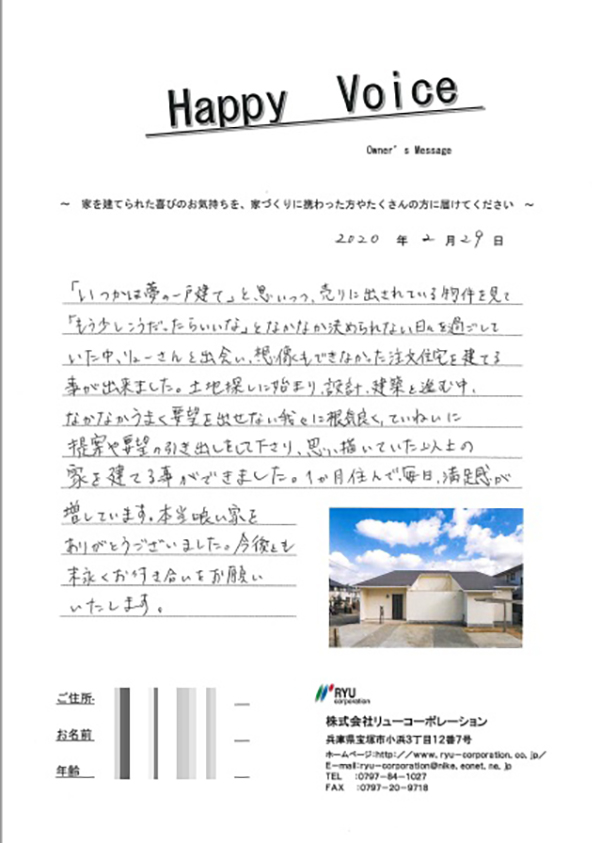 Happy Voice
Owner's Message
～ 家を建てられた喜びのお気持ちを、家づくりに携わった方やたくさんの方に届けてください ～
2020 年 2 月 29 日
「いつかは夢の一戸建て」と思いつつ、売りに出されている物件を見て
「もう少しこうだったらいいな」となかなか決められない日々を過ごして
いた中、リューさんと出会い、想像もできなかった注文住宅を建てる
事が出来ました。土地探しに始まり、設計、建築と進む中、
なかなかうまく要望を出せない我々に根気良く、ていねいに
提案や要望の引き出しをして下さり、思い描いていた以上の
家を建てる事ができました。1か月住んで、毎日、満足感が
増しています。本当に良い家を
ありがとうございました。今後とも
末永くお付き合いをお願い
いたします。
ご住所
お名前
年齢
RYU
corporation
株式会社リューコーポレーション
兵庫県宝塚市小浜3丁目12番7号
ホームページ:http://www.ryu-corporation.co.jp/
E-mail:ryu-corporation@nike.eonet.ne.jp
TEL :0797-84-1027
FAX :0797-20-9718